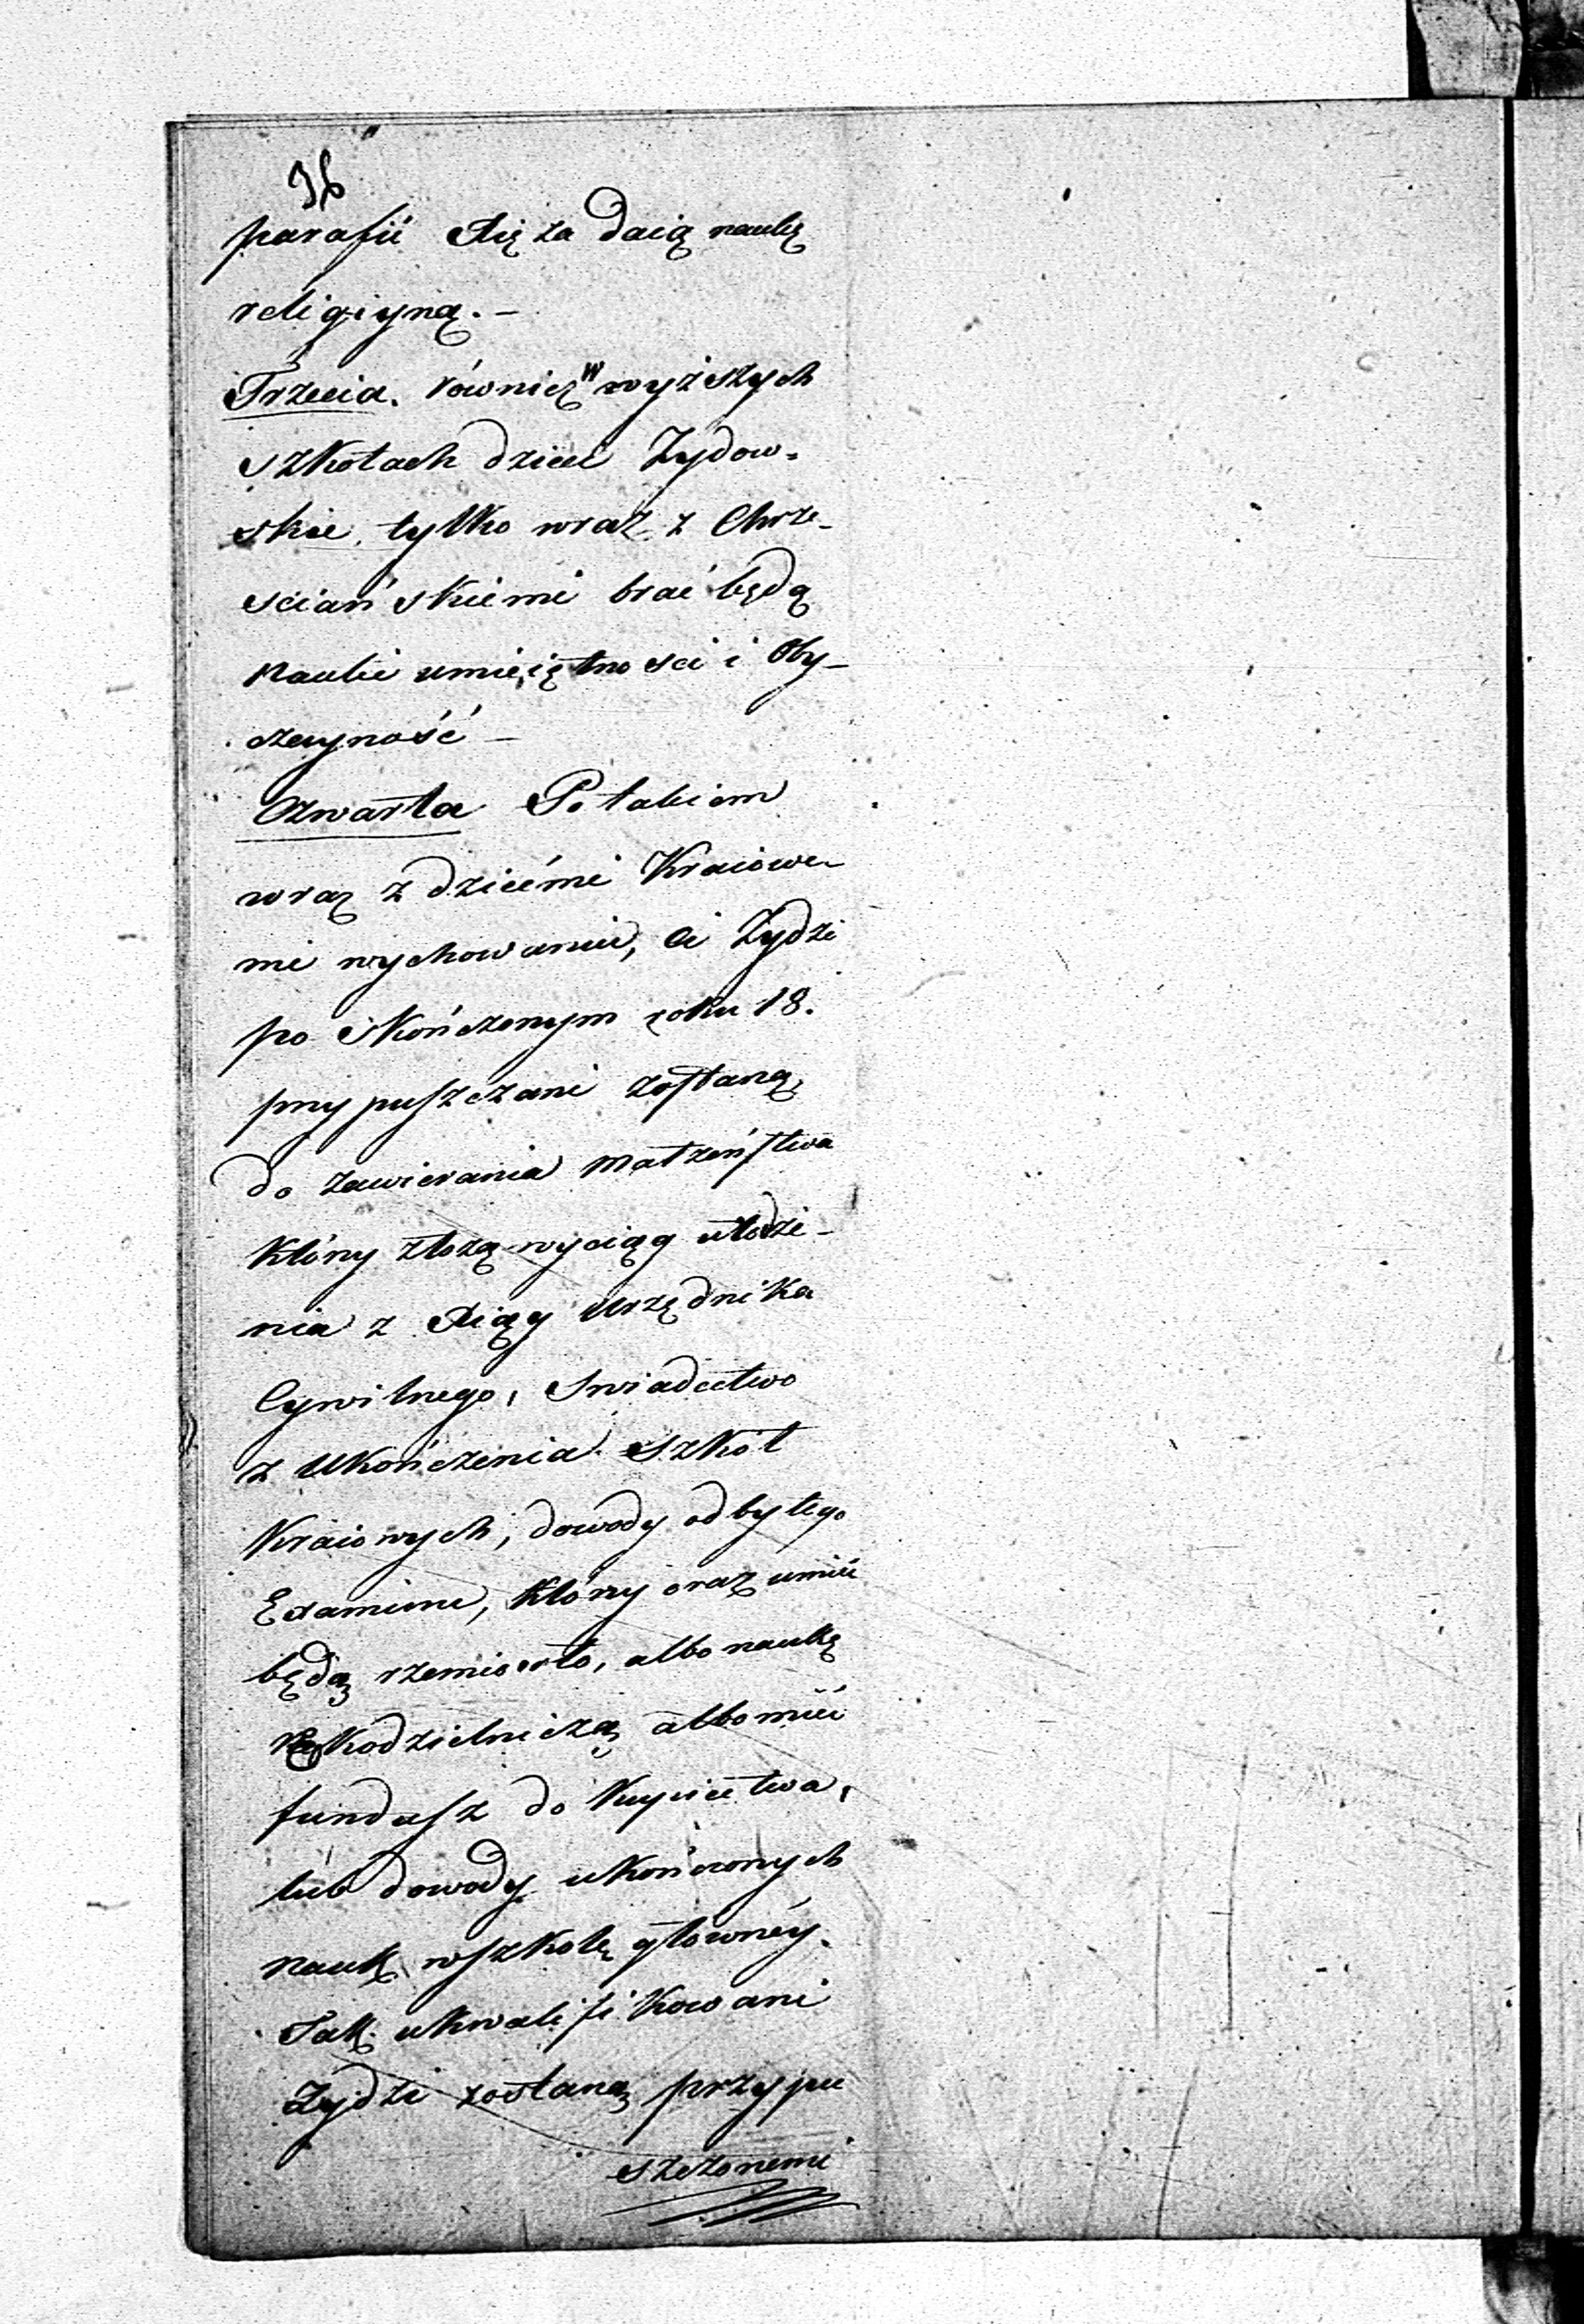 36
parafii Xięża daią naukę
religiyną. –
Trzecia. równięż w wyższych
szkołach dzieci Żydow-
skie, tylko wraz z Chrze-
sciańskiemi brać będą
nauki umieiętności i Oby-
czayność –
Czwarta Po takiem
wraz z dziećmi Kraiowe-
mi wychowaniu, ci Żydzi
po skończonym roku 18.
przypuszczani zostaną,
do zawierania małżeństwa
którzy złożą wyciąg urodze-
nia z Xiąg Urzędnika
Cywilnego, Swiadectwo
z Ukończenia szkół
Kraiowych, dowody odbytego
Examinu, którzy oraz umieć
będą rzemiosło, albo naukę
rękodzielniczą albo mieć
fundusz do kupiectwa,
lub dowody ukończonych
nauk w szkole główney.
Tak ukwalifikowani
Żydzi zostaną przypu
szczonemi